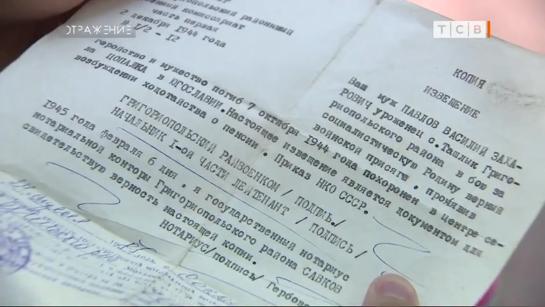 ОТРАЖЕНИЕ
ТСВ
районный
комиссариат
часть первая
2 декабря 1944 года
1/2 - 12
КОПИЯ
ИЗВЕЩЕНИЕ
Ваш муж ПАВЛОВ ВАСИЛИЙ ЗАХА-
РОВИЧ уроженец с.Ташлык Григо-
риопольского района в бою за
социалистическую Родину верный
воинской присяге, проявив
геройство и мужество погиб 7 октября 1944 года похоронен в центре се-
ла ПОПАЛКА в ЮГОСЛАВИИ.Настоящее извещение является документом для
возбуждении ходотайства о пенсии. Приказ НКО СССР.
ГРИГОРИОПОЛЬСКИЙ РАЙВОЕНКОМ /ПОДПИСЬ/
НАЧАЛЬНИК I-ОЙ ЧАСТИ ЛЕЙТЕНАНТ /ПОДПИСЬ/
1945 года февраля 6 дня, я государственный нотариус
нотариальной конторы Григориопольского района САВКОВ
свидетельствую верность настоящей копии.
НОТАРИУС/подпись/